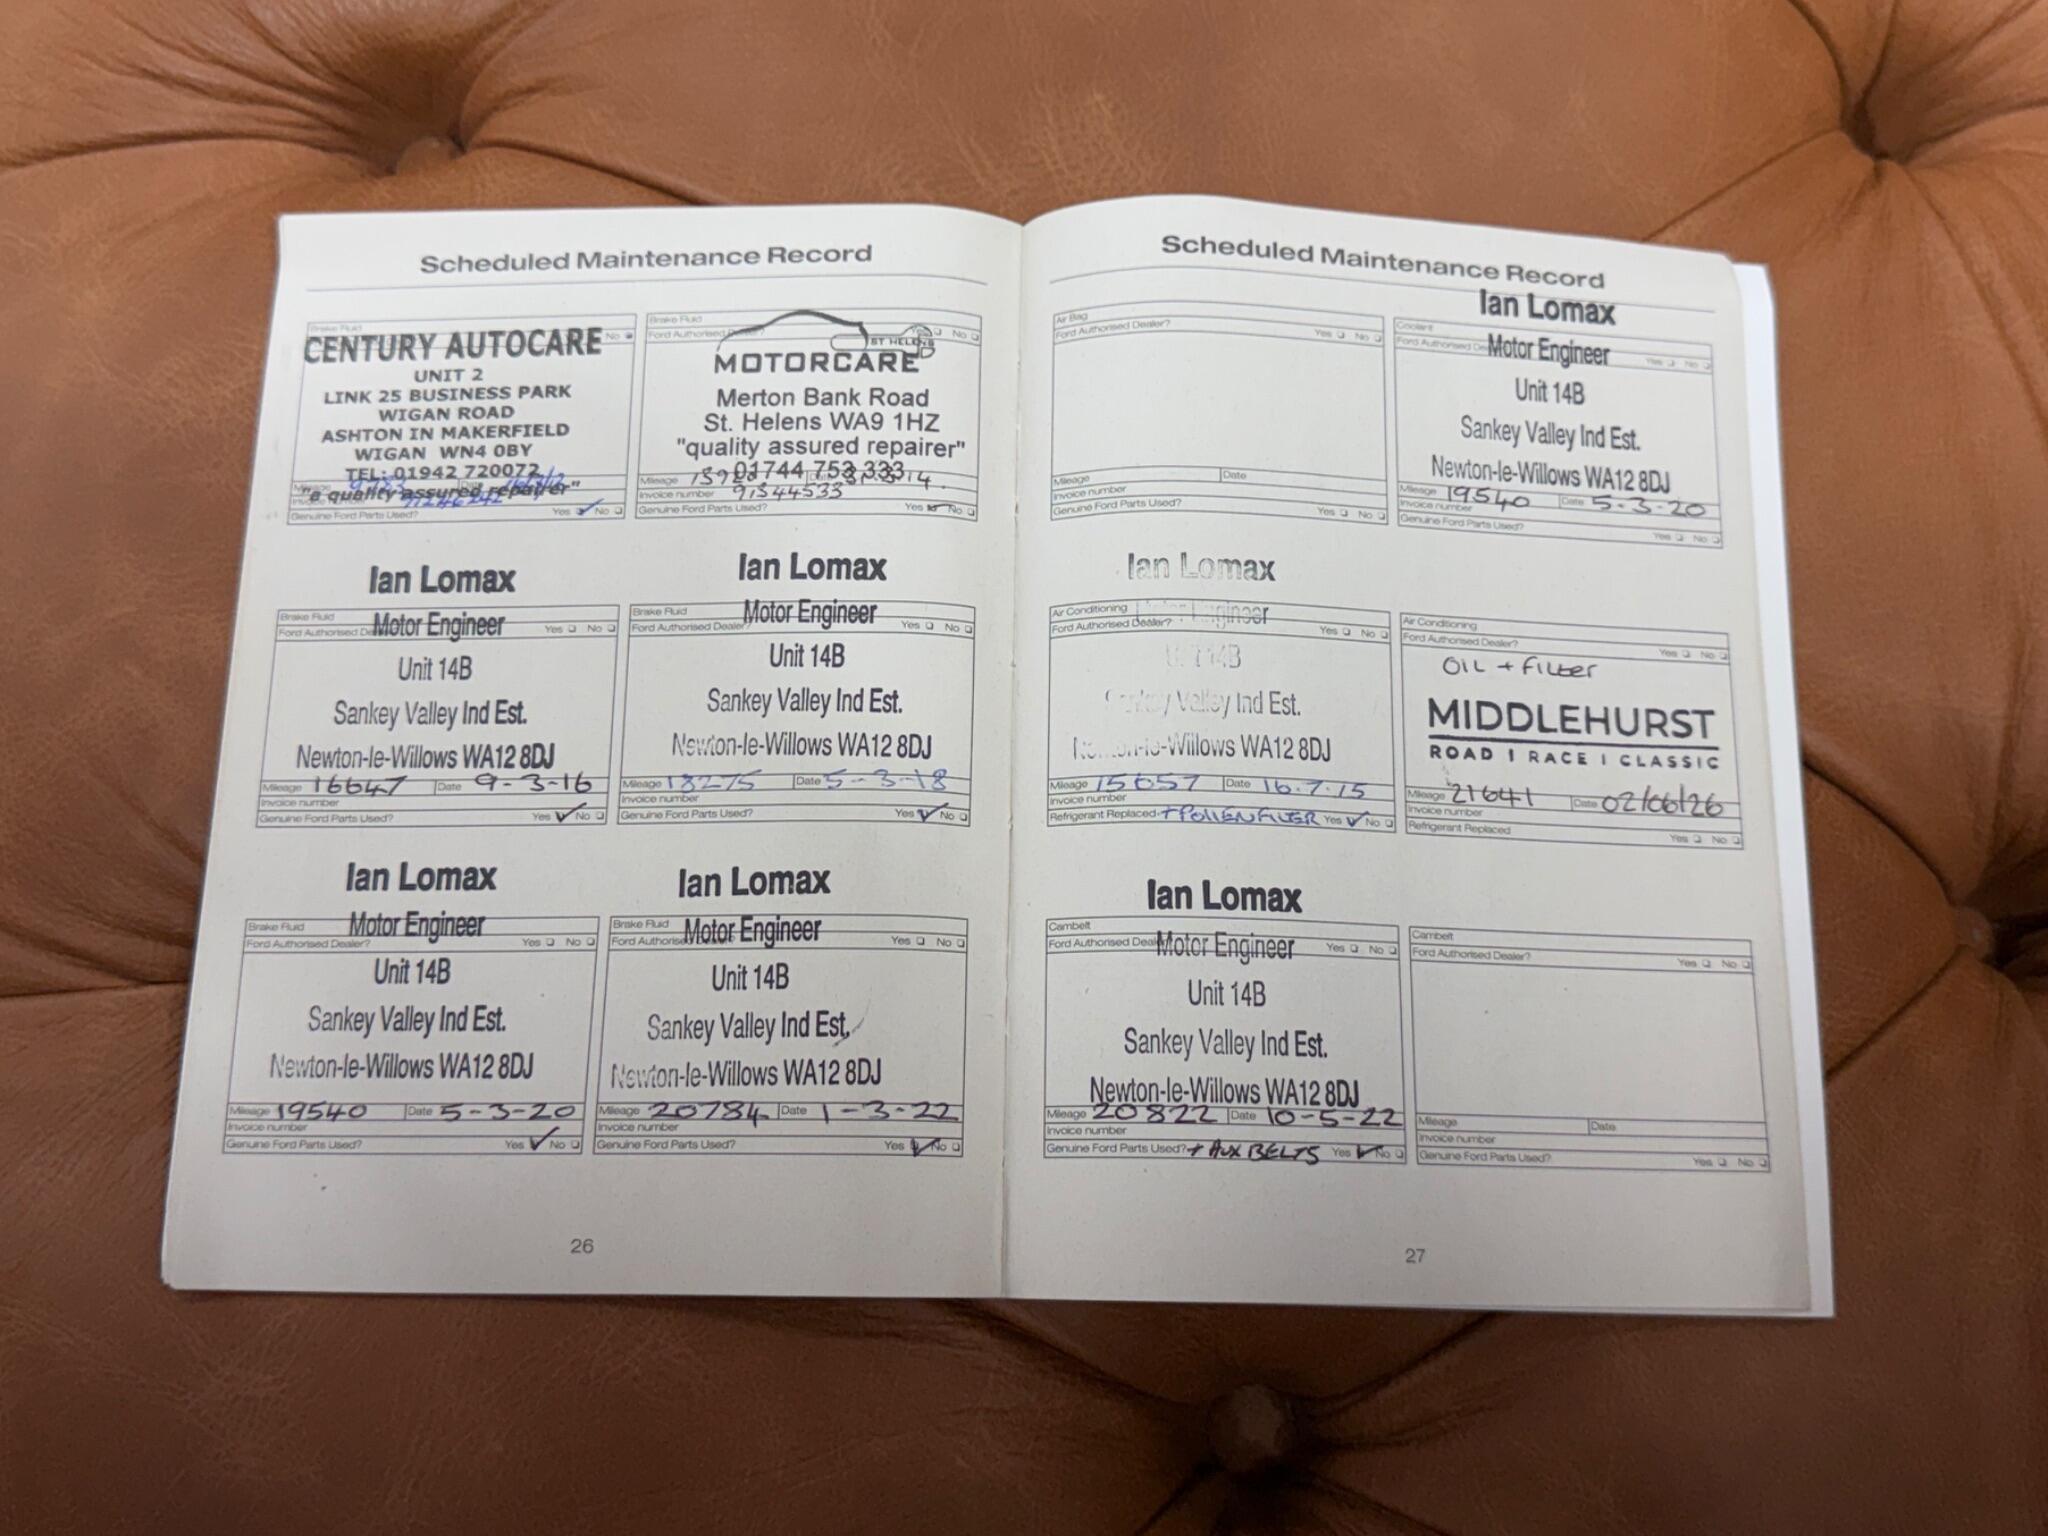 Scheduled Maintenance Record
Brake Fluid
No
CENTURY AUTOCARE
UNIT 2
LINK 25 BUSINESS PARK
WIGAN ROAD
ASHTON IN MAKERFIELD
WIGAN WN4 0BY
TEL: 01942 720072
"a quality assured repairer"
Genuine Ford Parts Used? Yes No
Brake Fluid
Ford Authorised Dealer? No
ST HELENS
MOTORCARE
Merton Bank Road
St. Helens WA9 1HZ
"quality assured repairer"
01744 753 333
Mileage
Invoice number 91344533
Genuine Ford Parts Used? Yes No
Ian Lomax
Brake Fluid
Motor Engineer
Ford Authorised Yes No
Unit 14B
Sankey Valley Ind Est.
Newton-le-Willows WA12 8DJ
Mileage 16647 Date 9-3-16
Invoice number
Genuine Ford Parts Used? Yes No
Ian Lomax
Brake Fluid
Motor Engineer
Ford Authorised Dealer? Yes No
Unit 14B
Sankey Valley Ind Est.
Newton-le-Willows WA12 8DJ
Mileage 18275 Date 5-3-18
Invoice number
Genuine Ford Parts Used? Yes No
Ian Lomax
Brake Fluid
Motor Engineer
Ford Authorised Dealer? Yes No
Unit 14B
Sankey Valley Ind Est.
Newton-le-Willows WA12 8DJ
Mileage 19540 Date 5-3-20
Invoice number
Genuine Ford Parts Used? Yes No
Ian Lomax
Brake Fluid
Motor Engineer
Ford Authorised Yes No
Unit 14B
Sankey Valley Ind Est.
Newton-le-Willows WA12 8DJ
Mileage 20784 Date 1-3-22
Invoice number
Genuine Ford Parts Used? Yes No
26
Scheduled Maintenance Record
Air Bag
Ford Authorised Dealer? Yes No
Mileage Date
Invoice number
Genuine Ford Parts Used? Yes No
Ian Lomax
Coolant
Motor Engineer
Ford Authorised Yes No
Unit 14B
Sankey Valley Ind Est.
Newton-le-Willows WA12 8DJ
Mileage 19540 Date 5-3-20
Invoice number
Genuine Ford Parts Used? Yes No
Ian Lomax
Air Conditioning
Motor Engineer
Ford Authorised Dealer? Yes No
Unit 14B
Sankey Valley Ind Est.
Newton-le-Willows WA12 8DJ
Mileage 15657 Date 16.7.15
Invoice number
Refrigerant Replaced + POLLEN FILTER Yes No
Air Conditioning
Ford Authorised Dealer? Yes No
OIL + FILTER
MIDDLEHURST
ROAD | RACE | CLASSIC
Mileage 21641 Date 02/06/26
Invoice number
Refrigerant Replaced Yes No
Ian Lomax
Cambelt
Motor Engineer
Ford Authorised Yes No
Unit 14B
Sankey Valley Ind Est.
Newton-le-Willows WA12 8DJ
Mileage 20822 Date 10-5-22
Invoice number
Genuine Ford Parts Used? + AUX BELTS Yes No
Cambelt
Ford Authorised Dealer? Yes No
Mileage Date
Invoice number
Genuine Ford Parts Used? Yes No
27